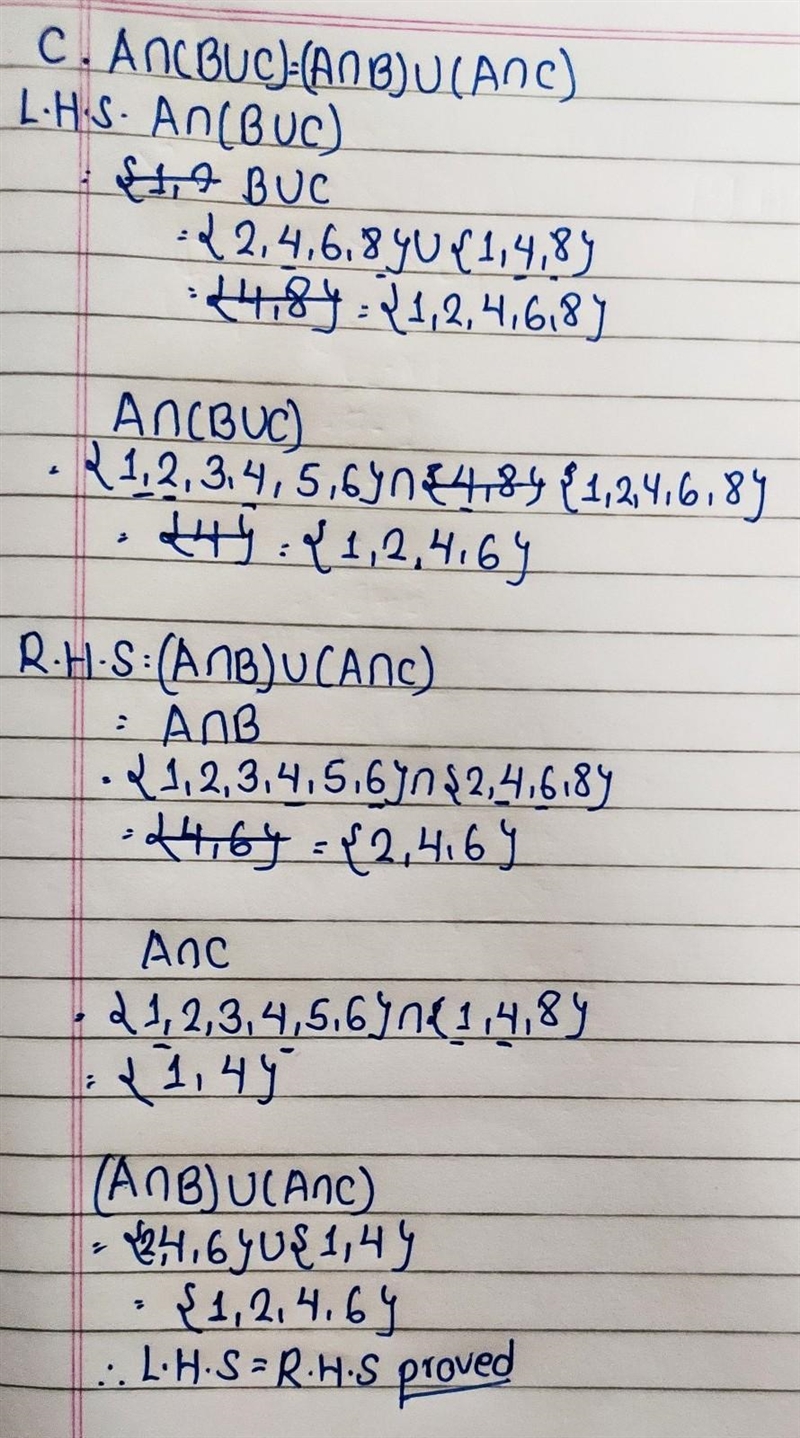 C. A∩(BUC)=(A∩B)U(A∩C)
L.H.S. A∩(BUC)
: BUC
={2,4,6,8}U{1,4,8}
={4,8}={1,2,4,6,8}
A∩(BUC)
. {1,2,3,4,5,6}∩{4,8}{1,2,4,6,8}
= {4}={1,2,4,6}
R.H.S:(A∩B)U(A∩C)
= A∩B
. {1,2,3,4,5,6}∩{2,4,6,8}
={4,6}={2,4,6}
A∩C
. {1,2,3,4,5,6}∩{1,4,8}
={1,4}
(A∩B)U(A∩C)
={2,4,6}U{1,4}
={1,2,4,6}
∴ L.H.S=R.H.S proved